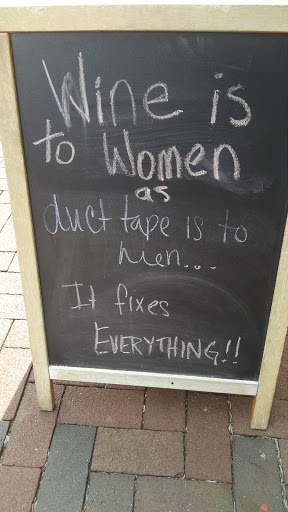 Wine is
to Women
as
duct tape is to
men...
It fixes
EVERYTHING!!